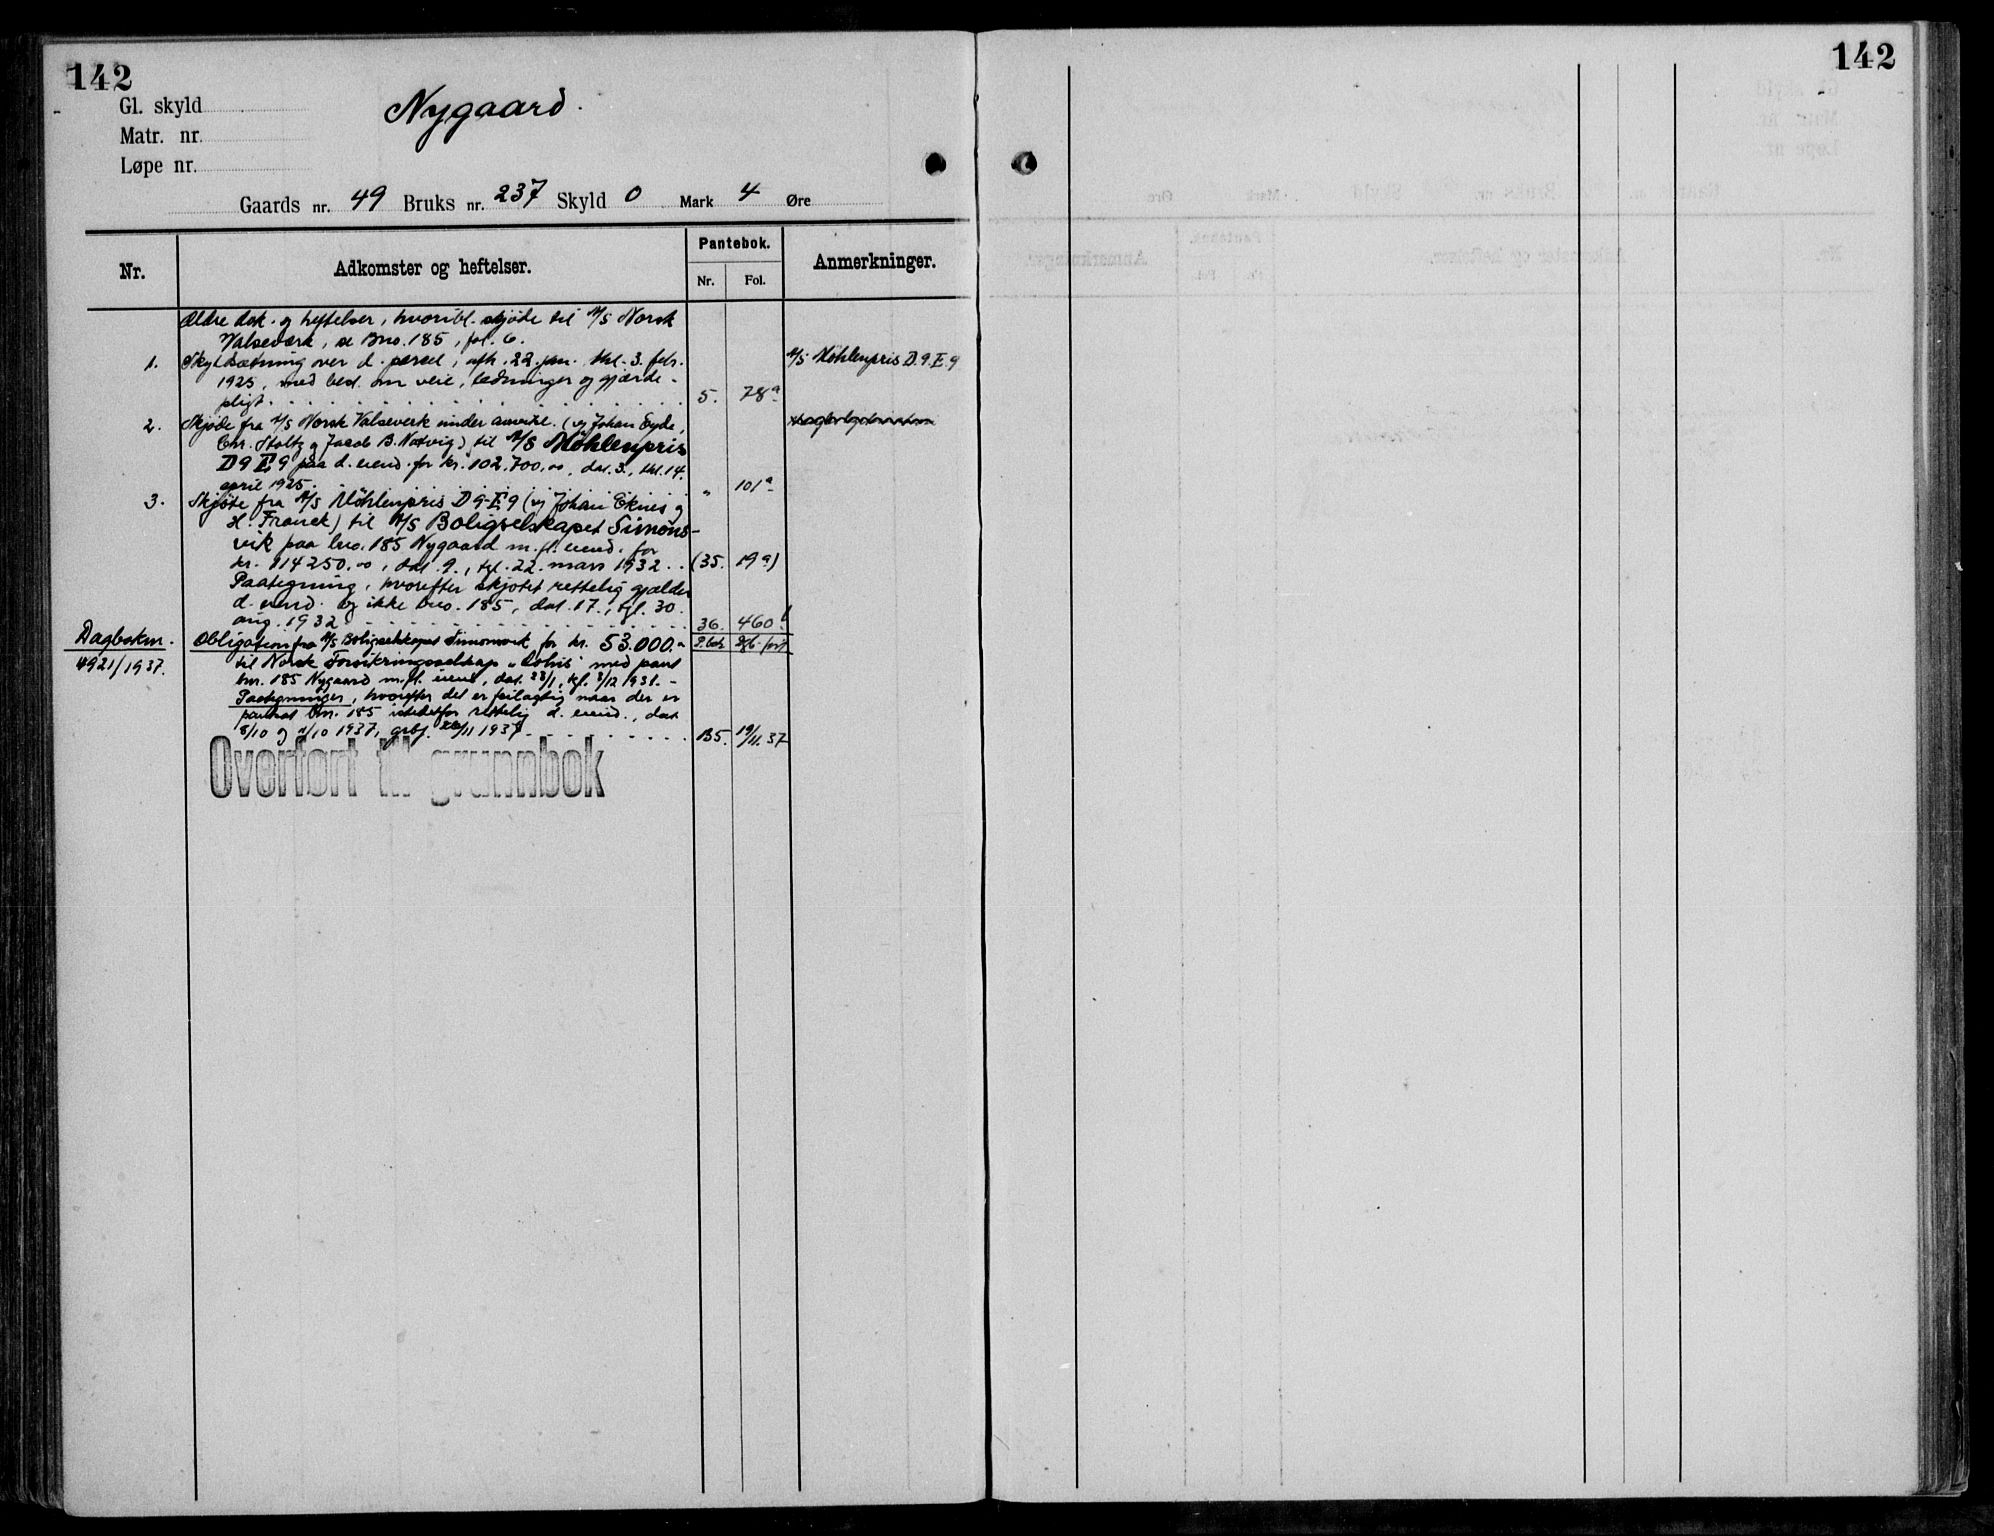 142
Gl. skyld
Matr. nr.
Løpe nr.
Nygaard.
Gaards nr. 49 Bruks nr. 237 Skyld 0 Mark 4 Øre
Nr.
Adkomster og heftelser.
Pantebok.
Nr. Fol.
Anmerkninger.
Ældre dok. og heftelser, hvoribl. skjøde til A/S Norsk
Valseverk, se Bno. 185, fol. 6.
1. Skyldsætning over d. parcel, afh. 22. jan. thl. 3. febr.
1925, med best. om veie, ledninger og gjærde-
pligt. 5. 78a
A/S Møhlenpris D.9.E.9
2. Skjøde fra A/S Norsk Valseverk under avvikl. (v/ Johan Eyde,
Chr. Stoltz og Jacob B. Natvig) til A/S Møhlenpris
D9E9 paa d. eiend. for kr. 102.700.00, dat. 3., thl. 14.
april 1925. " 101a
3. Skjøte fra A/S Møhlenpris D9-E9 (v/ Johan Eknes og
H. Franck) til A/S Boligselskapet Simons-
vik paa bno. 185 Nygaard m.fl. eiend. for
kr. 114250.00, dat. 9., tgl. 22. mars 1932. (35. 19a)
Paategning, hvorefter skjøtet rettelig gjælder
d. eiend. og ikke bno. 185, dat. 17., tgl. 30.
aug. 1932 36. 460b
Dagboken.
4921/1937.
Obligation fra A/S Boligselskapet Simonsvik for kr. 53.000.-
til Norsk Forsikringsselskap med pant
bnr. 185 Nygaard m.fl. eiend, dat. 23/1, tgl. 3/12 1931. -
Paategninger, hvorefter det er feilagtig naar der er
pantsat bnr. 185 istedetfor rettelig d. eiend., dat
8/10 og 1/10 1937, 1937 B5. 19/11.37
Overført til grunnbok
142